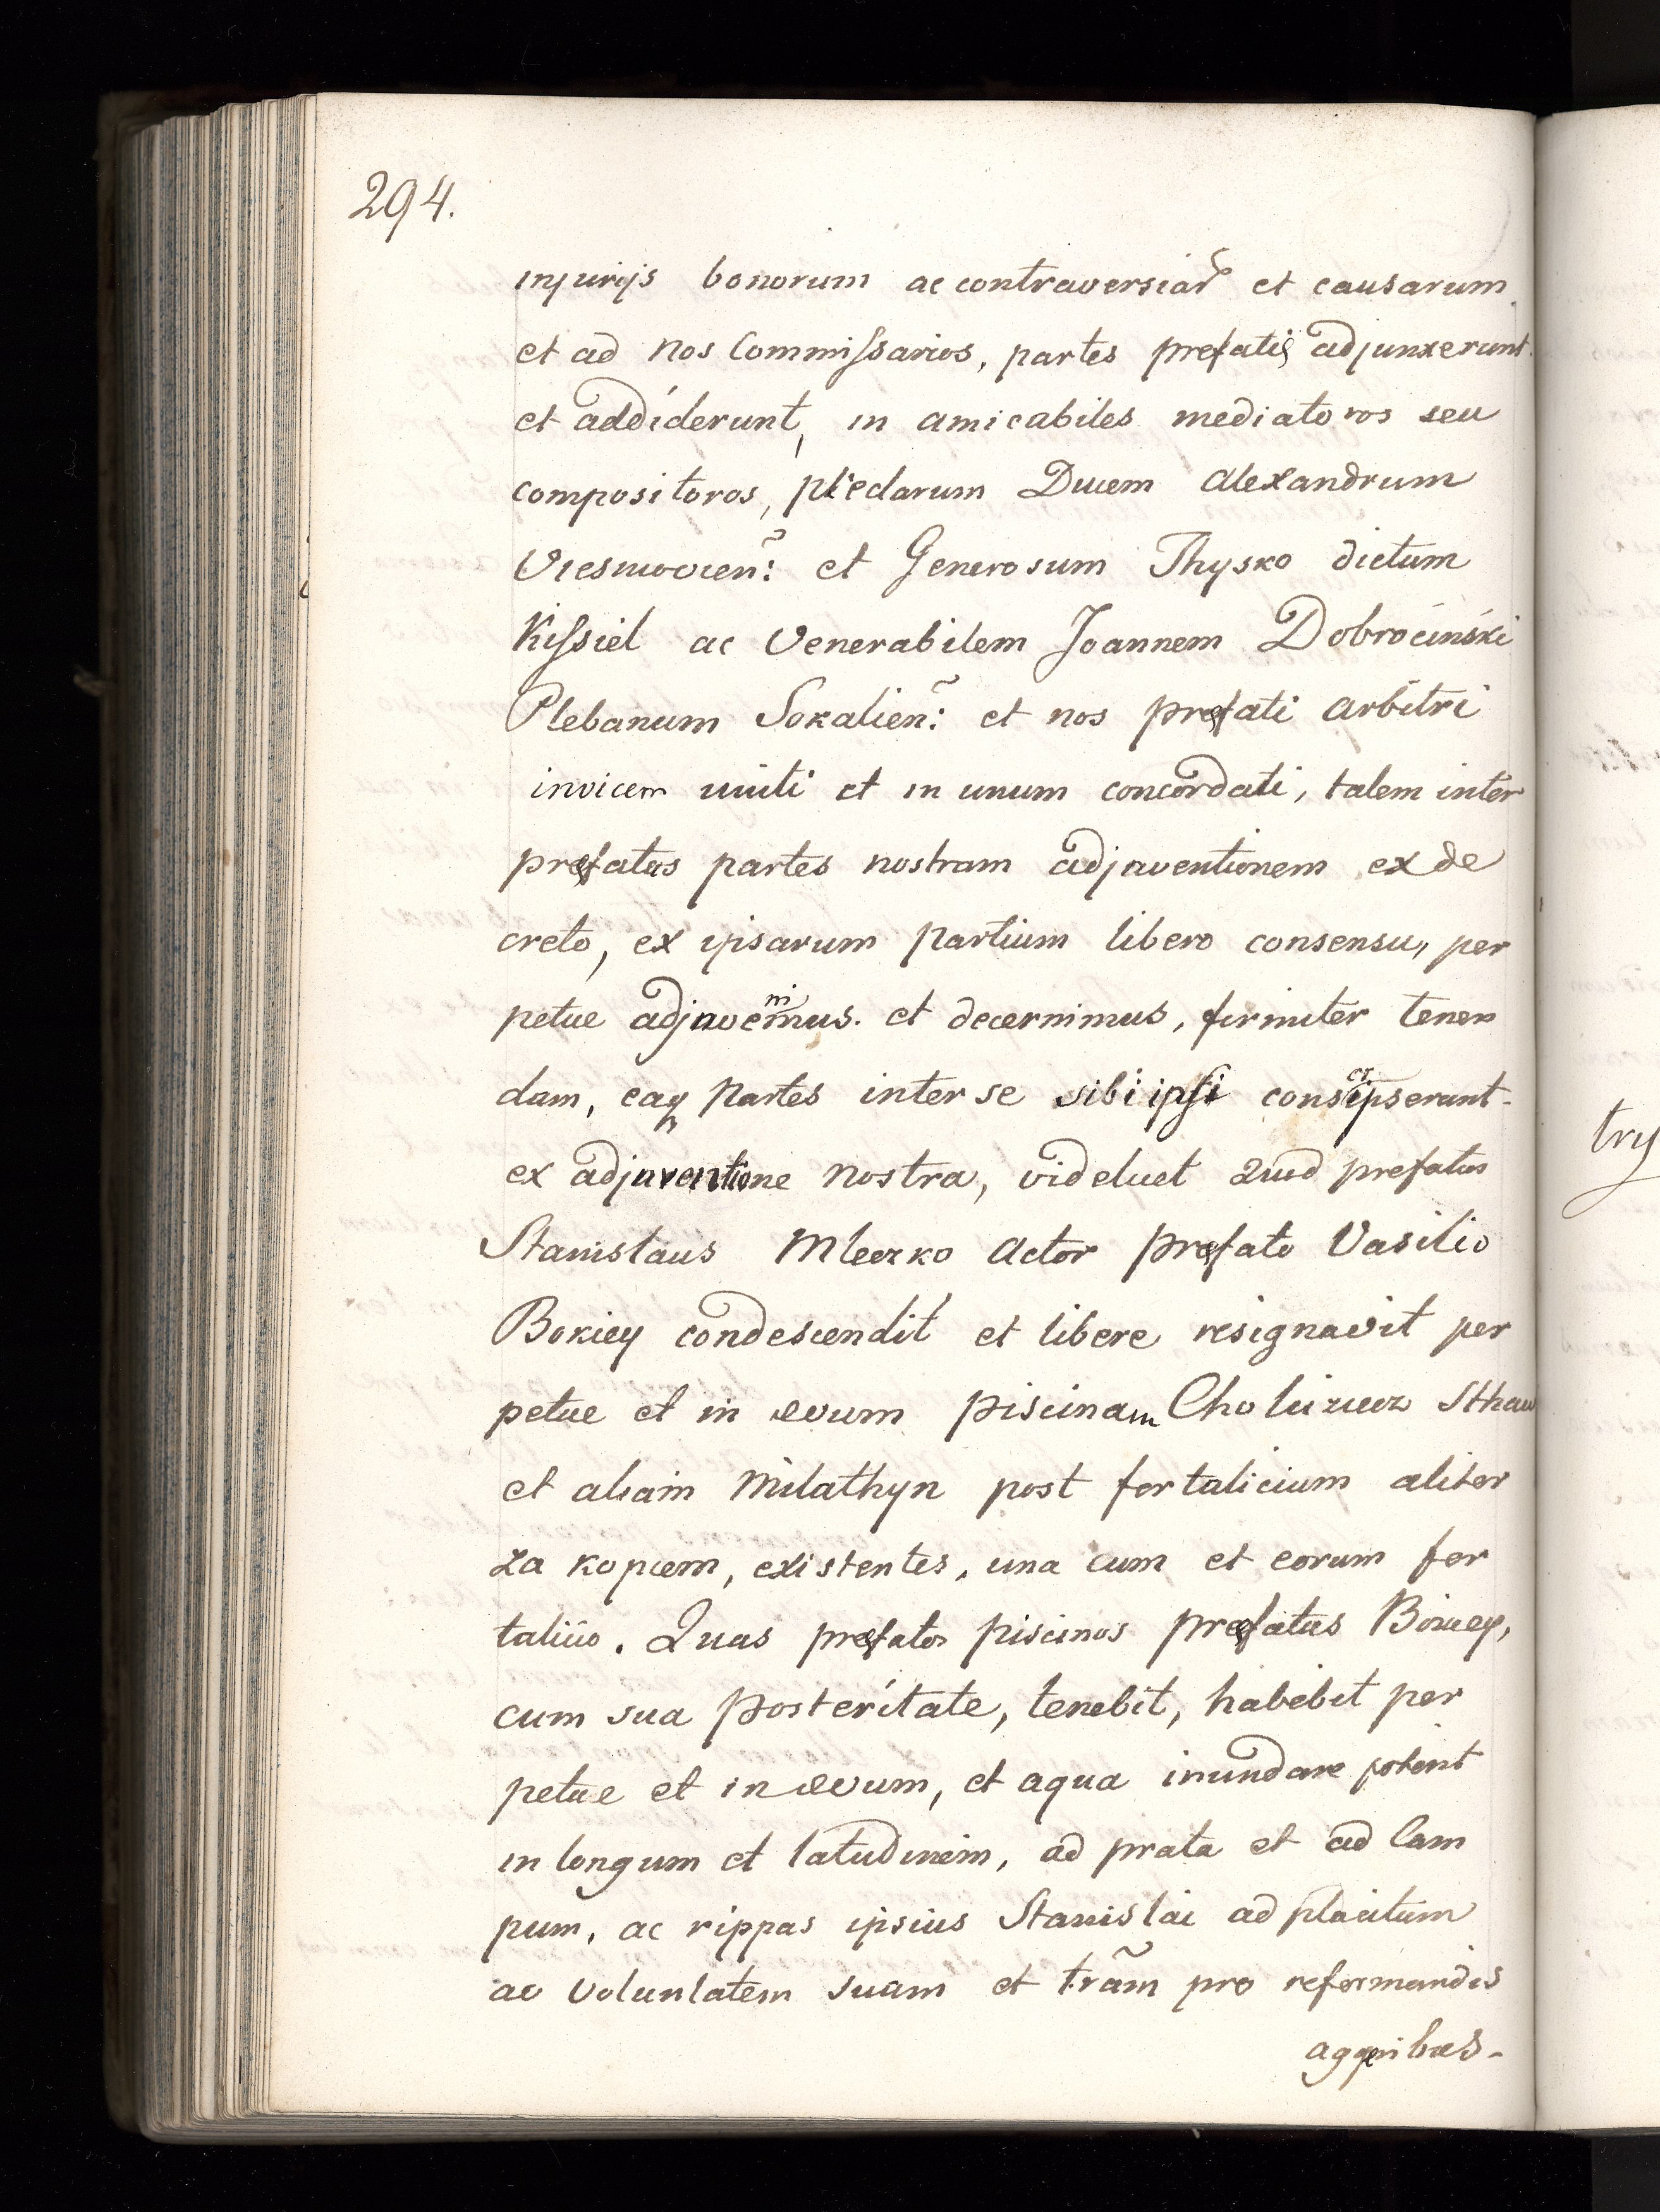 294.
injurijs bonorum ac contraversiar̃ et causarum
et ad nos Commissarios, partes prefatis adjunxerunt
et addiderunt, in amicabiles mediatoros seu
compositoros, Ducem Alexandrum
et Generosum Thysko dictum
Kissiel ac Venerabilem Joannem Dobrociński
Plebanum Sokalien̄: et nos præfati arbitri
invicem uniti et in unum concordati, talem inter
præfatas partes nostram adjnventionem ex de
creto, ex ipsarum partium libero consensu, per
petue adjnvenimus. et decernimus, firmiter tenen
dam, eaq partes inter se sibi ipsi conscripserunt
ex adjnventione nostra, videlicet quod prefatus
Stanislaus Mleczko Actor præfato Vasilio
Bokiey condescendit et libere resignavit per
petue et in ævum piscinam Sthaw
et aliam Milathyn post fortalicium aliter
za kopcem, existentes, una cum et eorum for
talicio. Quas præfatas piscinas præfatus Bokiey,
cum sua posteritate, tenebit, habebit per
petue et in ævum, et aqua inundare poterit
in longum et latudinem, ad prata et ad Cam
pum, ac rippas ipsius Stanislai ad placitum
ac voluntatem suam et tram̃ pro reformandis
aggeribus-
try